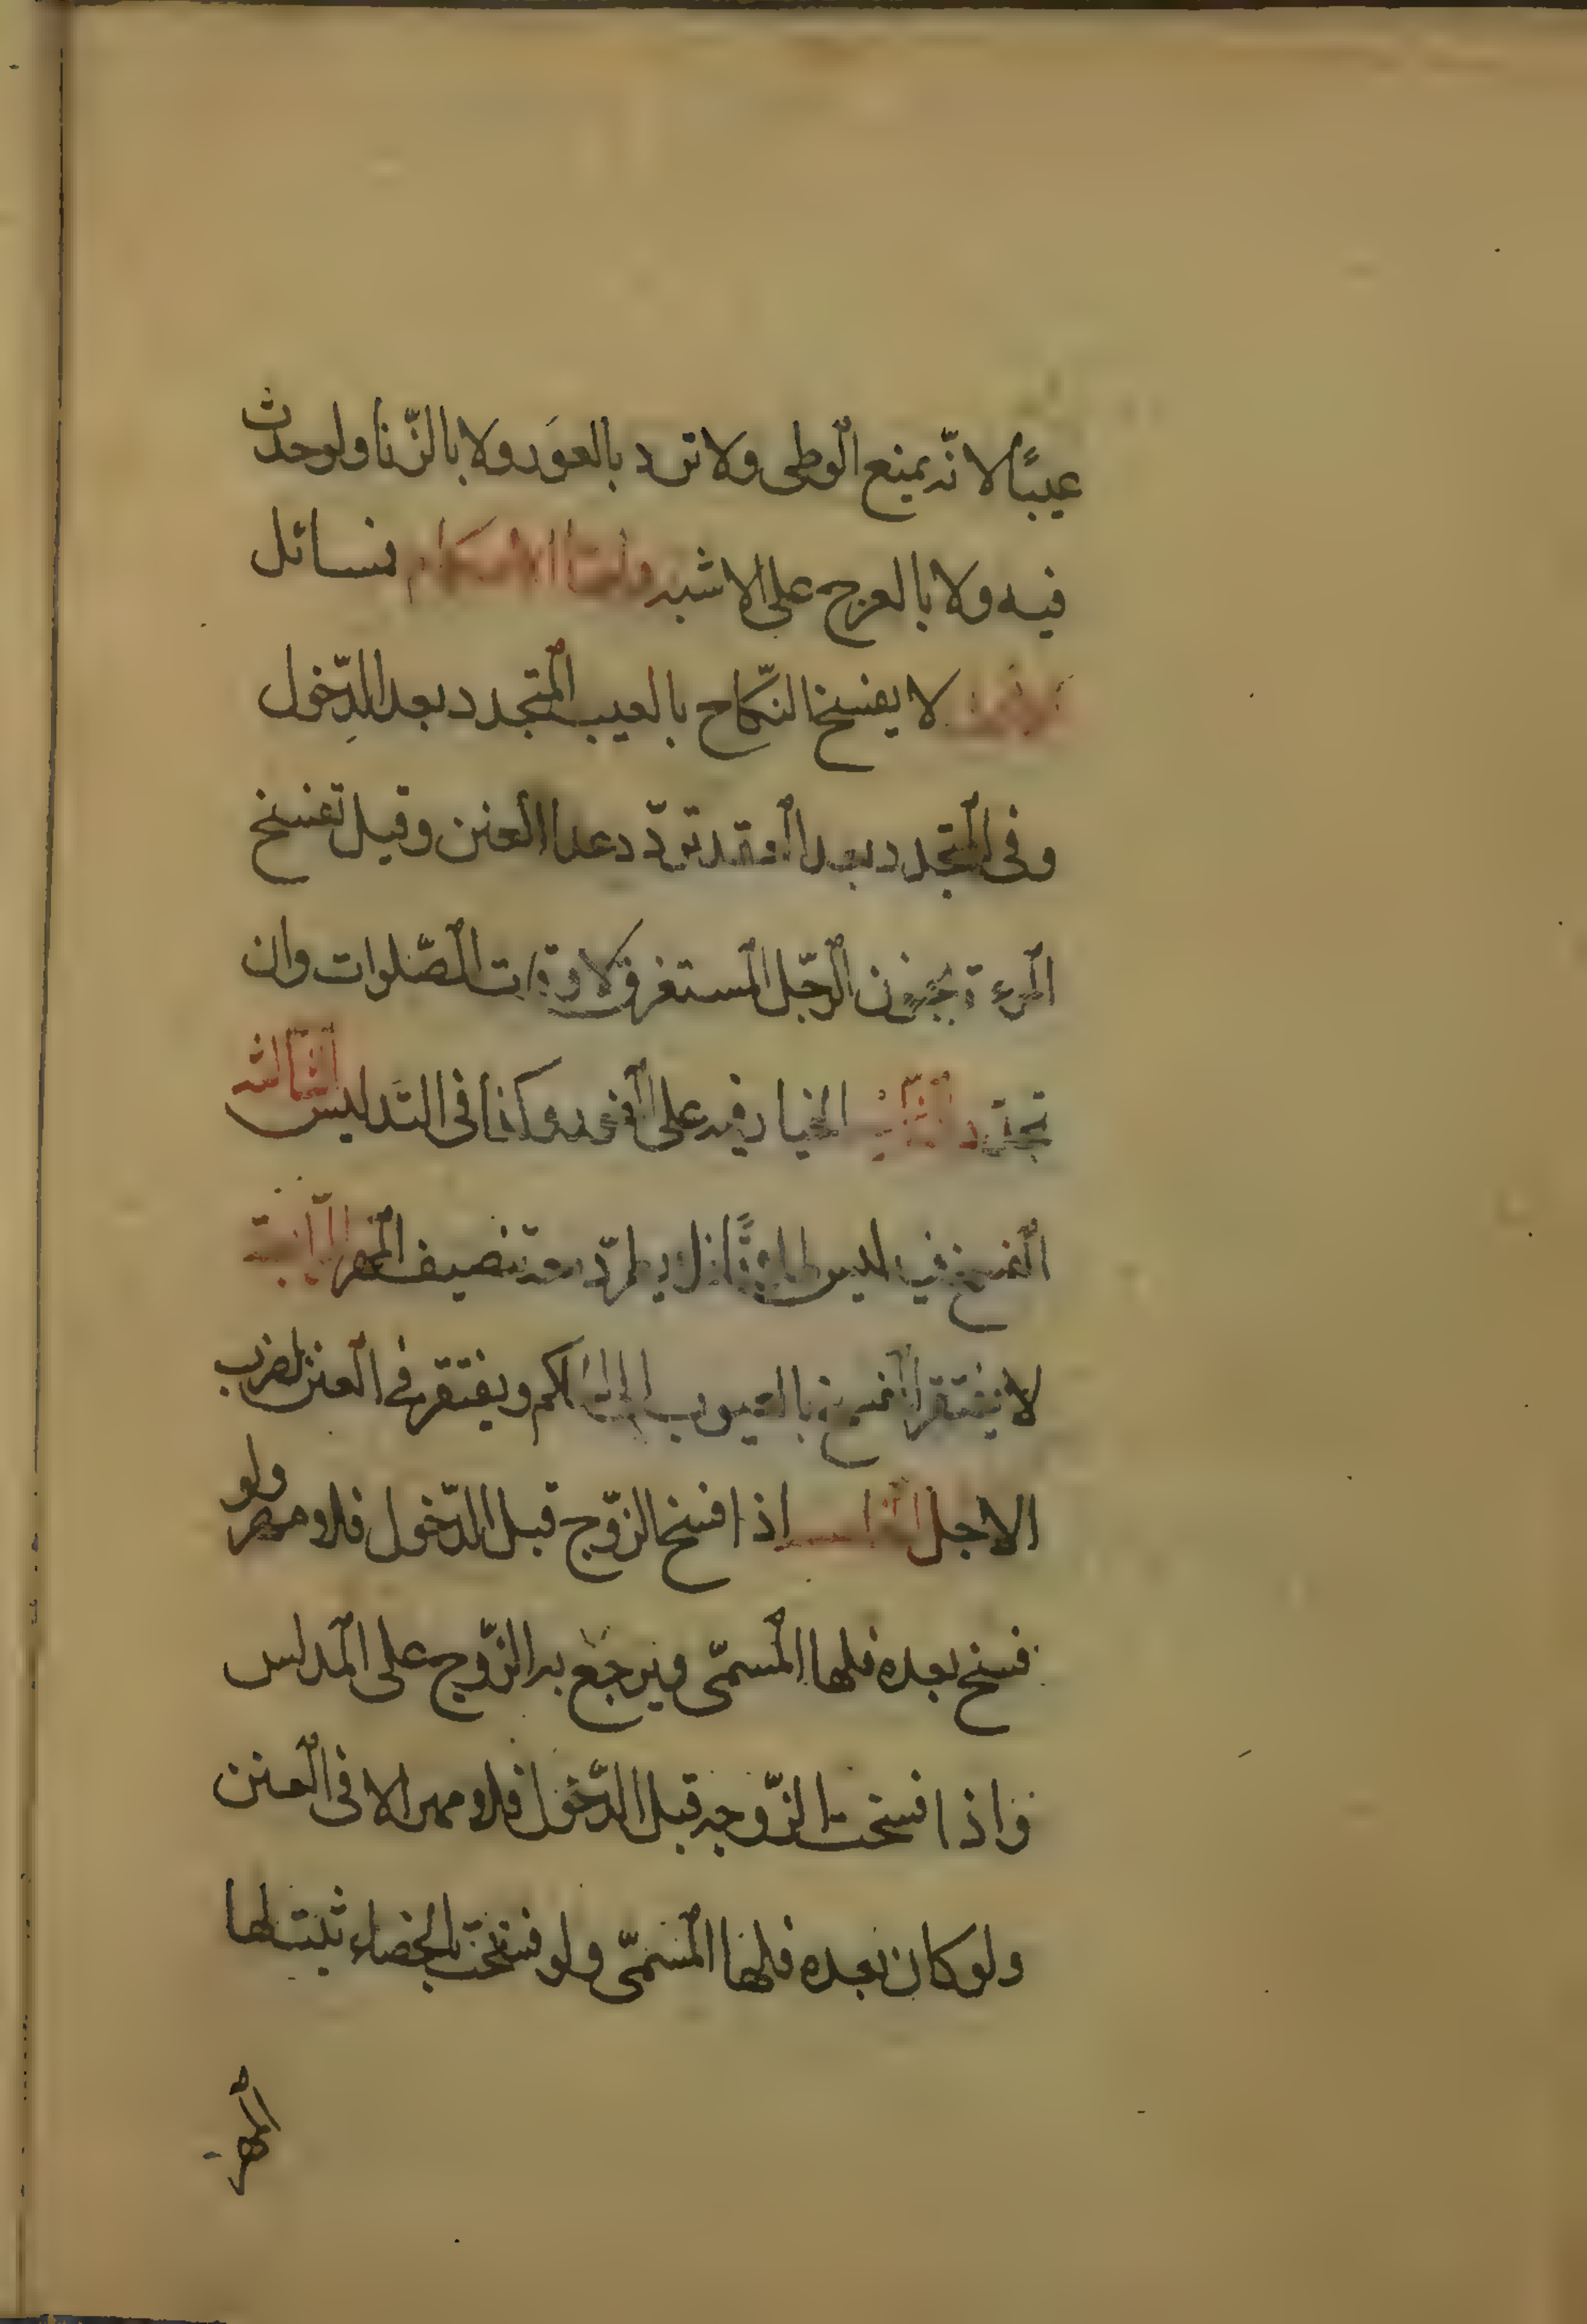 عيبًا لانّه يمنع الوطى ولا ترد بالعوَر ولا بالزّنا ولو حدث
فيه ولا بالعرج على الاشبه وامّا الاحكام فمسائل
لا يفسخ النّكاح بالعيب المتجدد بعد الدّخول
وفى المتجدد بعد العقد تردّد عدا العنن وقيل تفسخ
المرءة بجنون الرّجل المستغرق لاوقات الصّلوات وان
تجدّد الثّانية الخيار فيه على الفور وكذا فى التَدليس الثّالثه
الفسخ فيه ليس طلاقًا فلا يطرّد معه تنصيف المهر الرّابعة
لا يفتقر الفسخ بالعيوب الى الحاكم ويفتقر فى العنن لضرب
الاجل الخامسه اذا فسخ الزّوج قبل الدّخول فلا مهر ولو
فسخ بعده فلها المسمّى ويرجَع به الزّوج على المدلس
واذا فسخت الزّوجه قبل الدّخول فلا مهر الا فى العنن
ولو كان بعده فلها المسمّى ولو فسخت بالخصاء ثبت لها
المهر